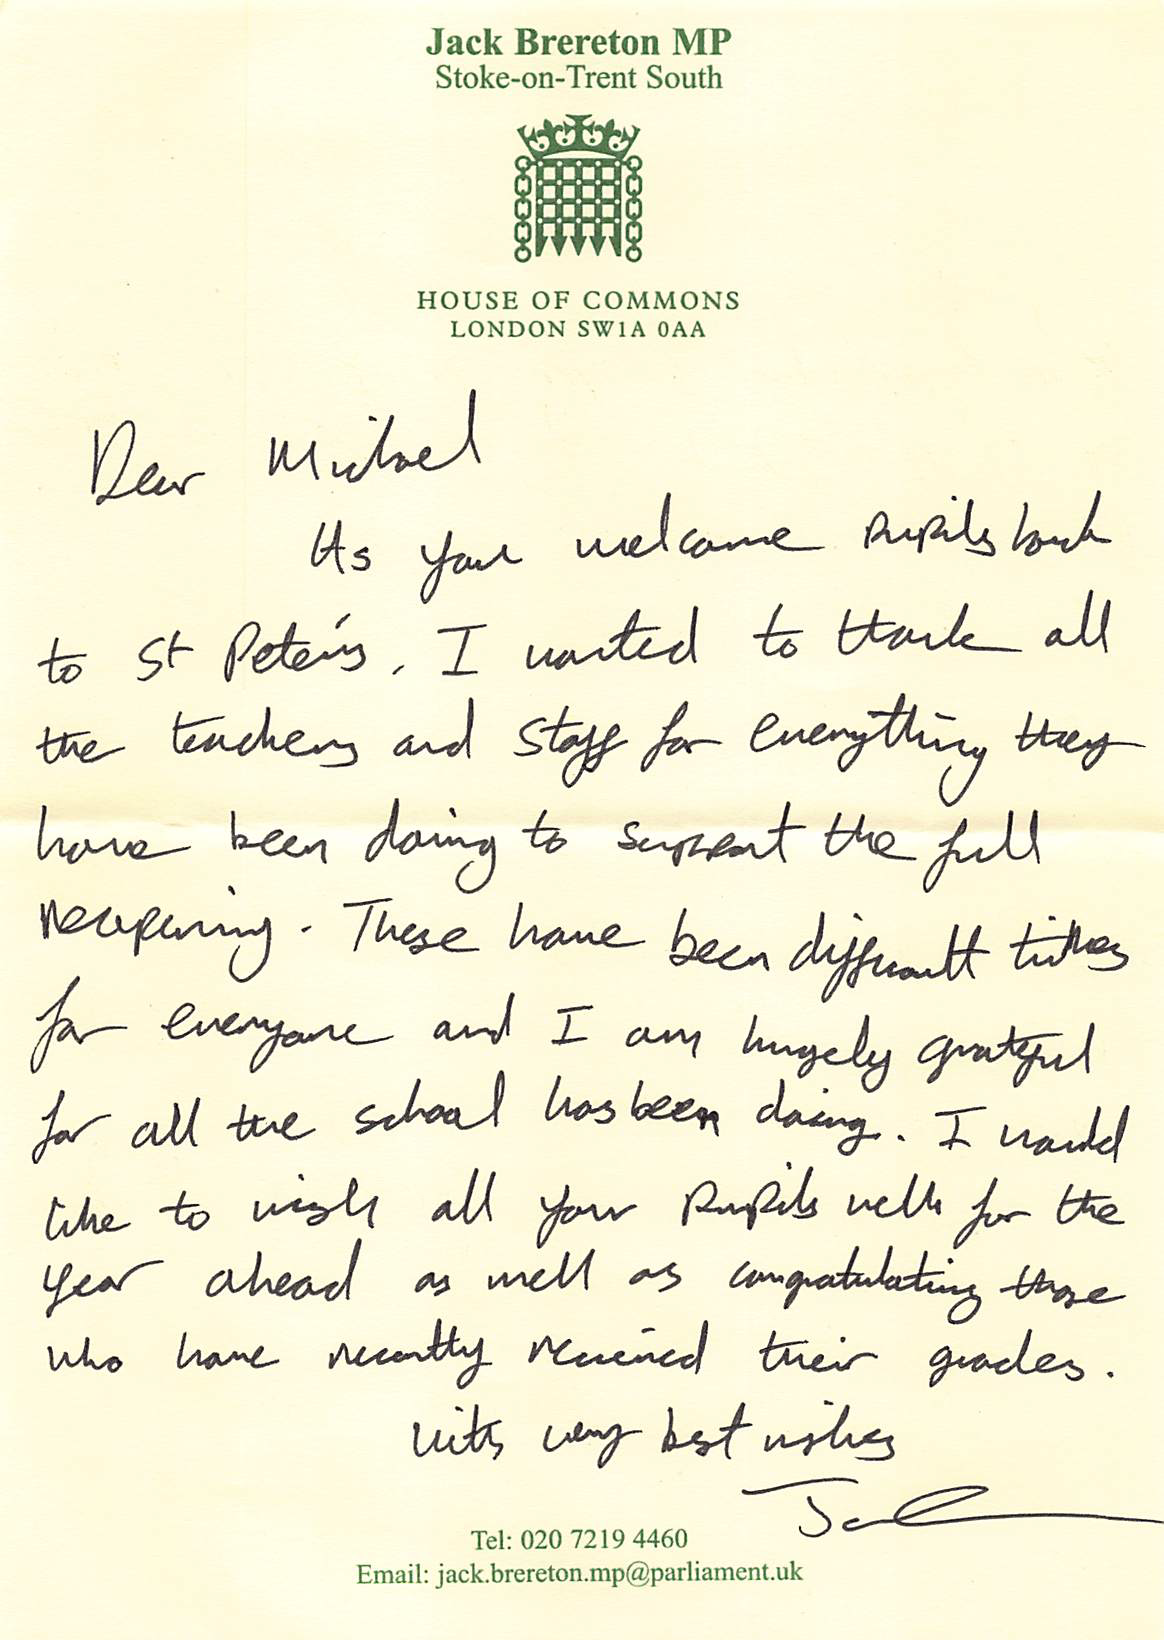 Jack Brereton MP
Stoke-on-Trent South
HOUSE OF COMMONS
LONDON SW1A 0AA
Dear Michael
As you welcome pupils back
to St Peter's, I wanted to thank all
the teachers and staff for everything they
have been doing to support the full
reopening. These have been difficult times
for everyone and I am hugely grateful
for all the school has been doing. I would
like to wish all your pupils well for the
year ahead as well as congratulating those
who have recently received their grades.
With very best wishes
Jack
Tel: 020 7219 4460
Email: jack.brereton.mp@parliament.uk